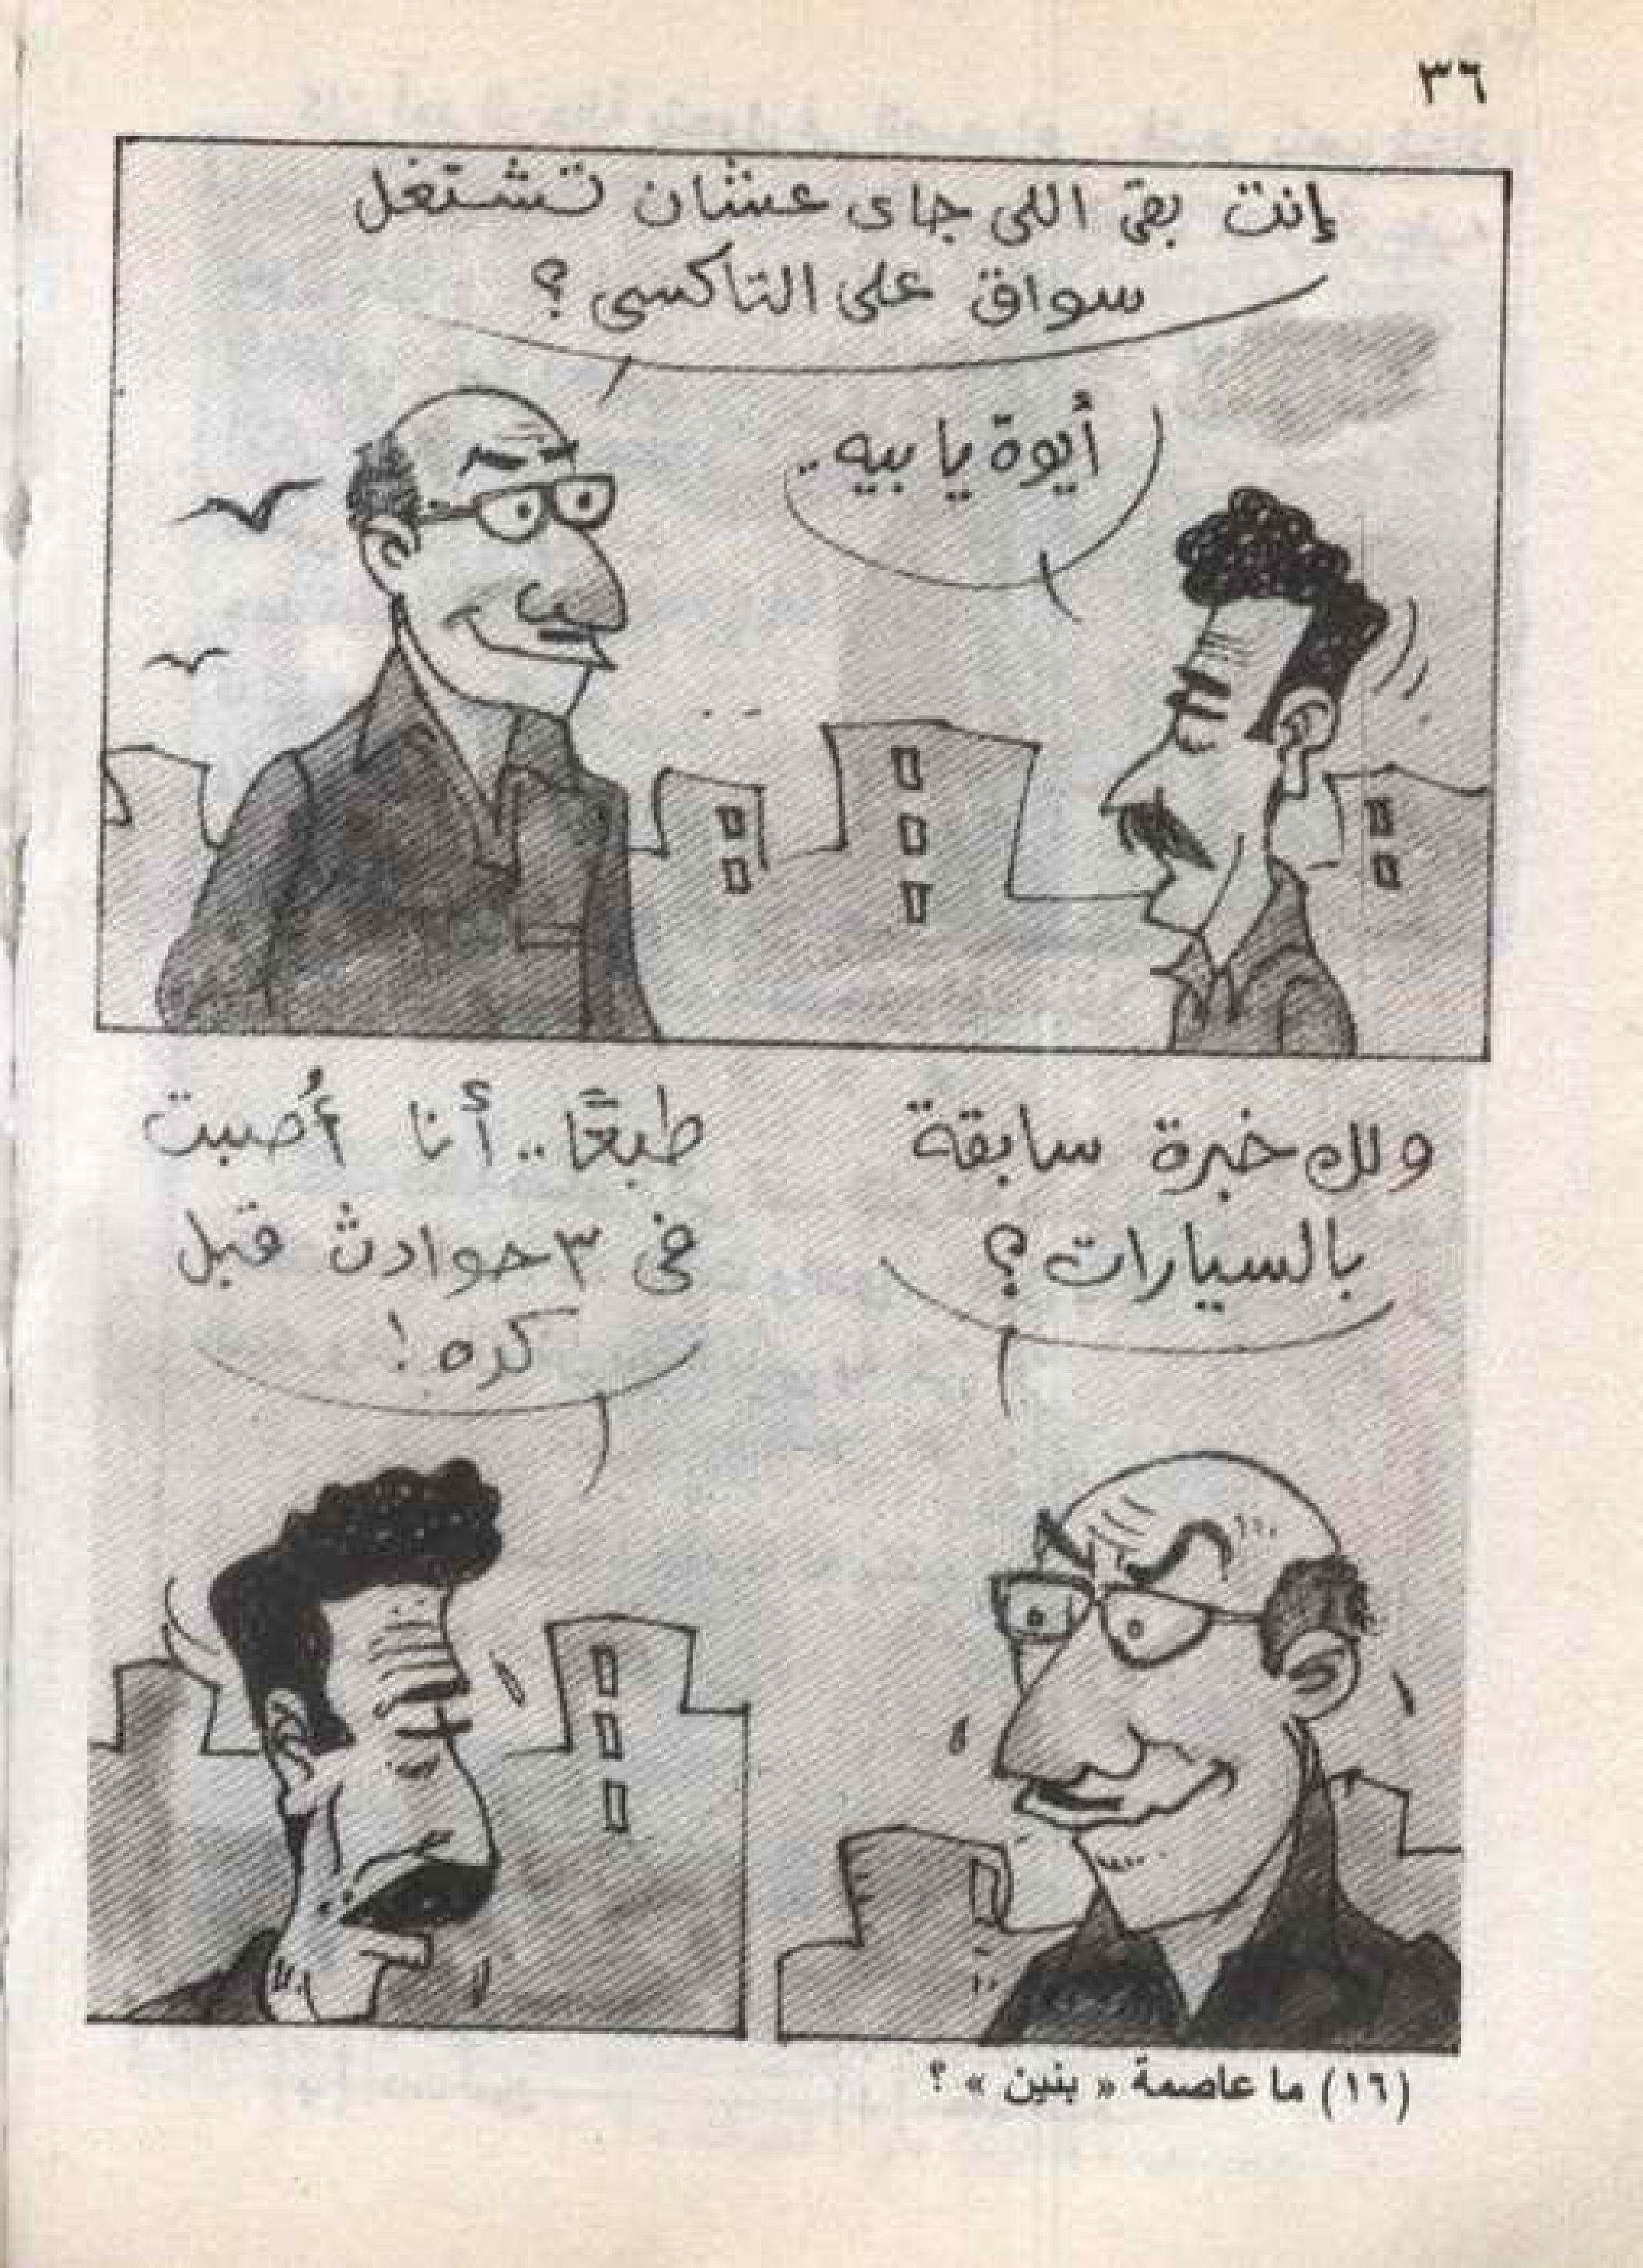 ٣٦
إنت بقى اللى جاى عشان تشتغل
سواق على التاكسى ؟
أيوة يا بيه ..
ولك خبرة سابقة
بالسيارات ؟
طبعًا .. أنا أُصبت
فى ٣ حوادث قبل
كده !
(١٦) ما عاصمة « بنين » ؟